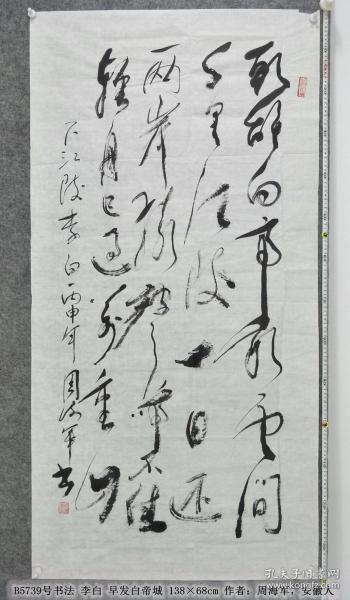 朝辞白帝彩云间
千里江陵一日还
两岸猿声啼不住
轻舟已过万重山
下江陵李白丙申年周海军书
孔夫子旧书网
B5739号书法 李白 早发白帝城 138×68cm 作者：周海军，安徽人